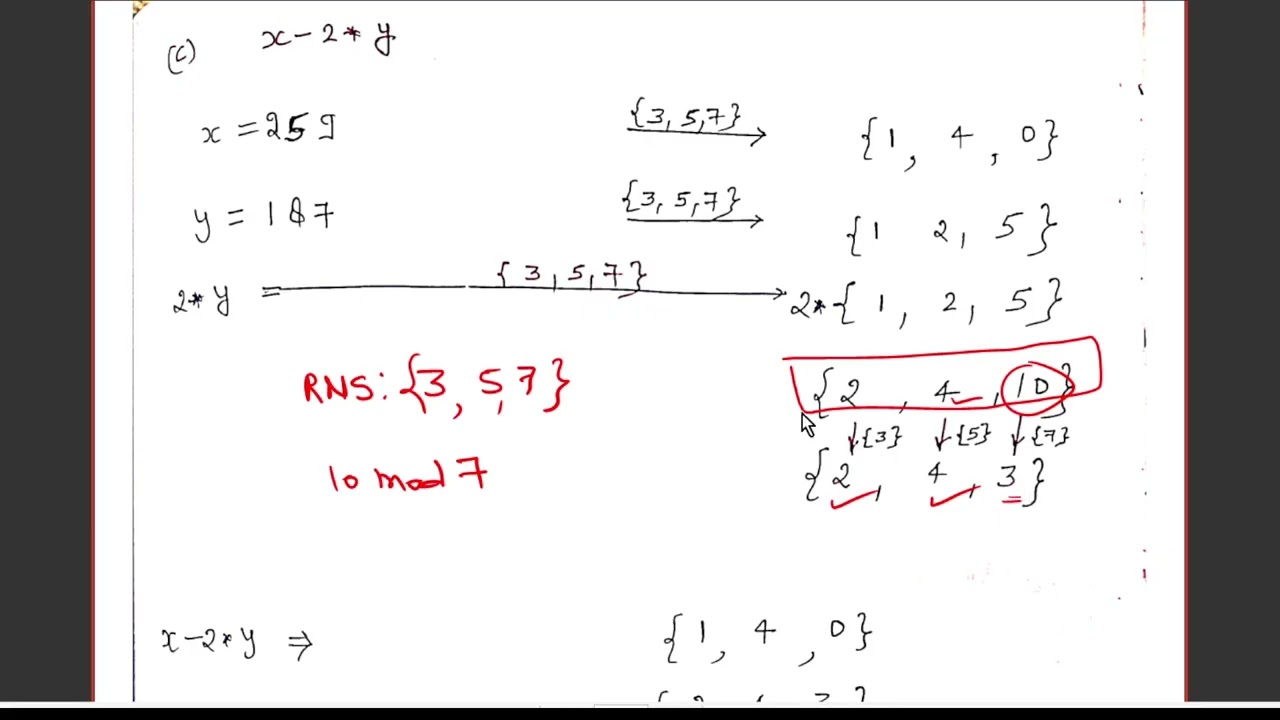 (c) x - 2 * y
x = 259 {3, 5,7} {1, 4, 0}
y = 187 {3, 5,7} {1 2, 5}
2 * y = {3, 5, 7} 2*{1, 2, 5}
RNS: {3, 5,7} {2, 4, 10}
{3} {5} {7}
10 mod 7 {2, 4, 3}
x-2*y ⇒ {1, 4, 0}